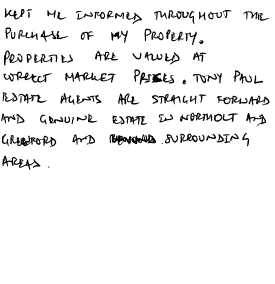 KEPT ME INFORMED THROUGHOUT THE
PURCHASE OF MY PROPERTY.
PROPERTIES ARE VALUED AT
CORRECT MARKET PRICES. TONY PAUL
ESTATE AGENTS ARE STRAIGHT FORWARD
AND GENUINE ESTATE IN NORTHOLT AND
GREENFORD AND SURROUNDING
AREAS.